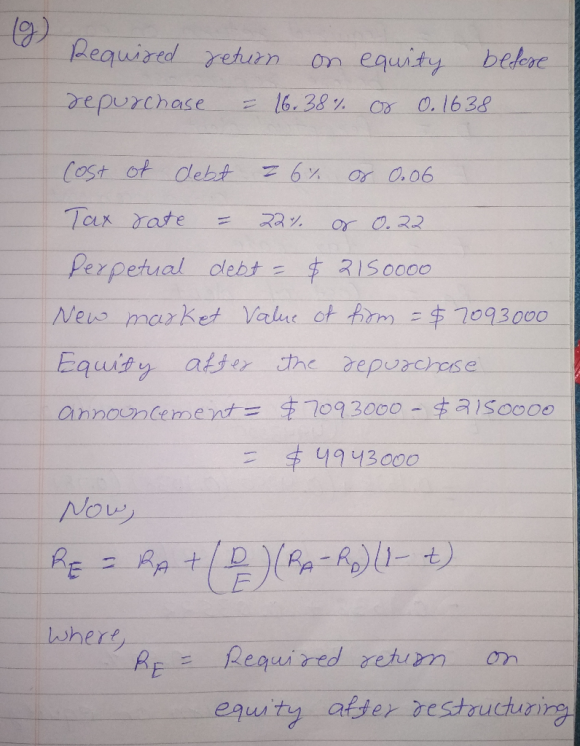 (g)
Required return on equity before
repurchase = 16.38% or 0.1638
Cost of debt = 6% or 0.06
Tax rate = 22% or 0.22
Perpetual debt = $ 2150000
New market Value of firm = $ 7093000
Equity after the repurchase
announcement = $ 7093000 - $ 2150000
= $ 4943000
Now,
R_E = R_A + (D/E)(R_A - R_D)(1 - t)
Where,
R_E = Required return on
equity after restructuring